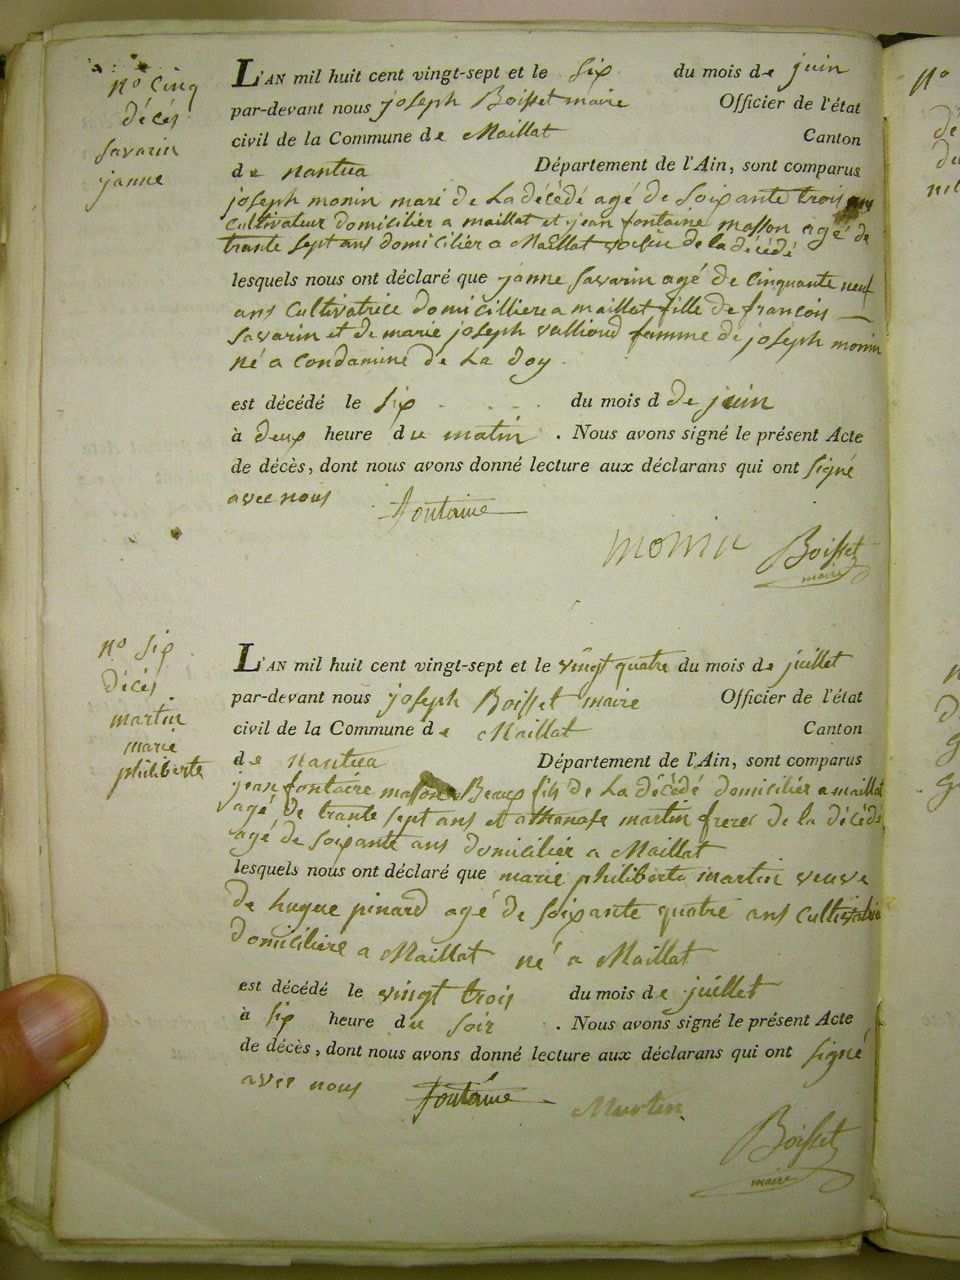 nº Cinq
décés
savarin
janne
L'AN mil huit cent vingt-sept et le six du mois de juin
par-devant nous joseph Boisset maire Officier de l'état
civil de la Commune de Maillat Canton
de nantua Département de l'Ain, sont comparus
joseph monin mari de La décédé agé de soixante trois ans
cultivateur domicilier a maillat et jean fontaine masson agé de
trante sept ans domicilier a Maillat voisin de la décédé
lesquels nous ont déclaré que janne savarin agé de cinquante neuf
ans cultivatrice domicilliere a maillat fille de francois
savarin et de marie joseph vallioud famme de joseph monin
né a condamine de La doy.
est décédé le six du mois d de juin
à deux heure du matin . Nous avons signé le présent Acte
de décès, dont nous avons donné lecture aux déclarans qui ont signé
avec nous
fontaine
monin Boisset
maire
nº six
décés
martin
marie
philiberte
L'AN mil huit cent vingt-sept et le vingt quatre du mois de juillet
par-devant nous joseph Boisset maire Officier de l'état
civil de la Commune de Maillat Canton
de nantua Département de l'Ain, sont comparus
jean fontaire masson Beaux fils de La décédé domicilier a maillat
agé de trante sept ans et athanase martin frere de la décédé
agé de soixante ans domicilier a Maillat
lesquels nous ont déclaré que marie philiberte martin veuve
de hugue pinard agé de soixante quatre ans cultivatrice
domiciliere a Maillat né a Maillat
est décédé le vingt trois du mois de juillet
à six heure du soir . Nous avons signé le présent Acte
de décès, dont nous avons donné lecture aux déclarans qui ont signé
avec nous fontaine Martin
Boisset
maire
nº